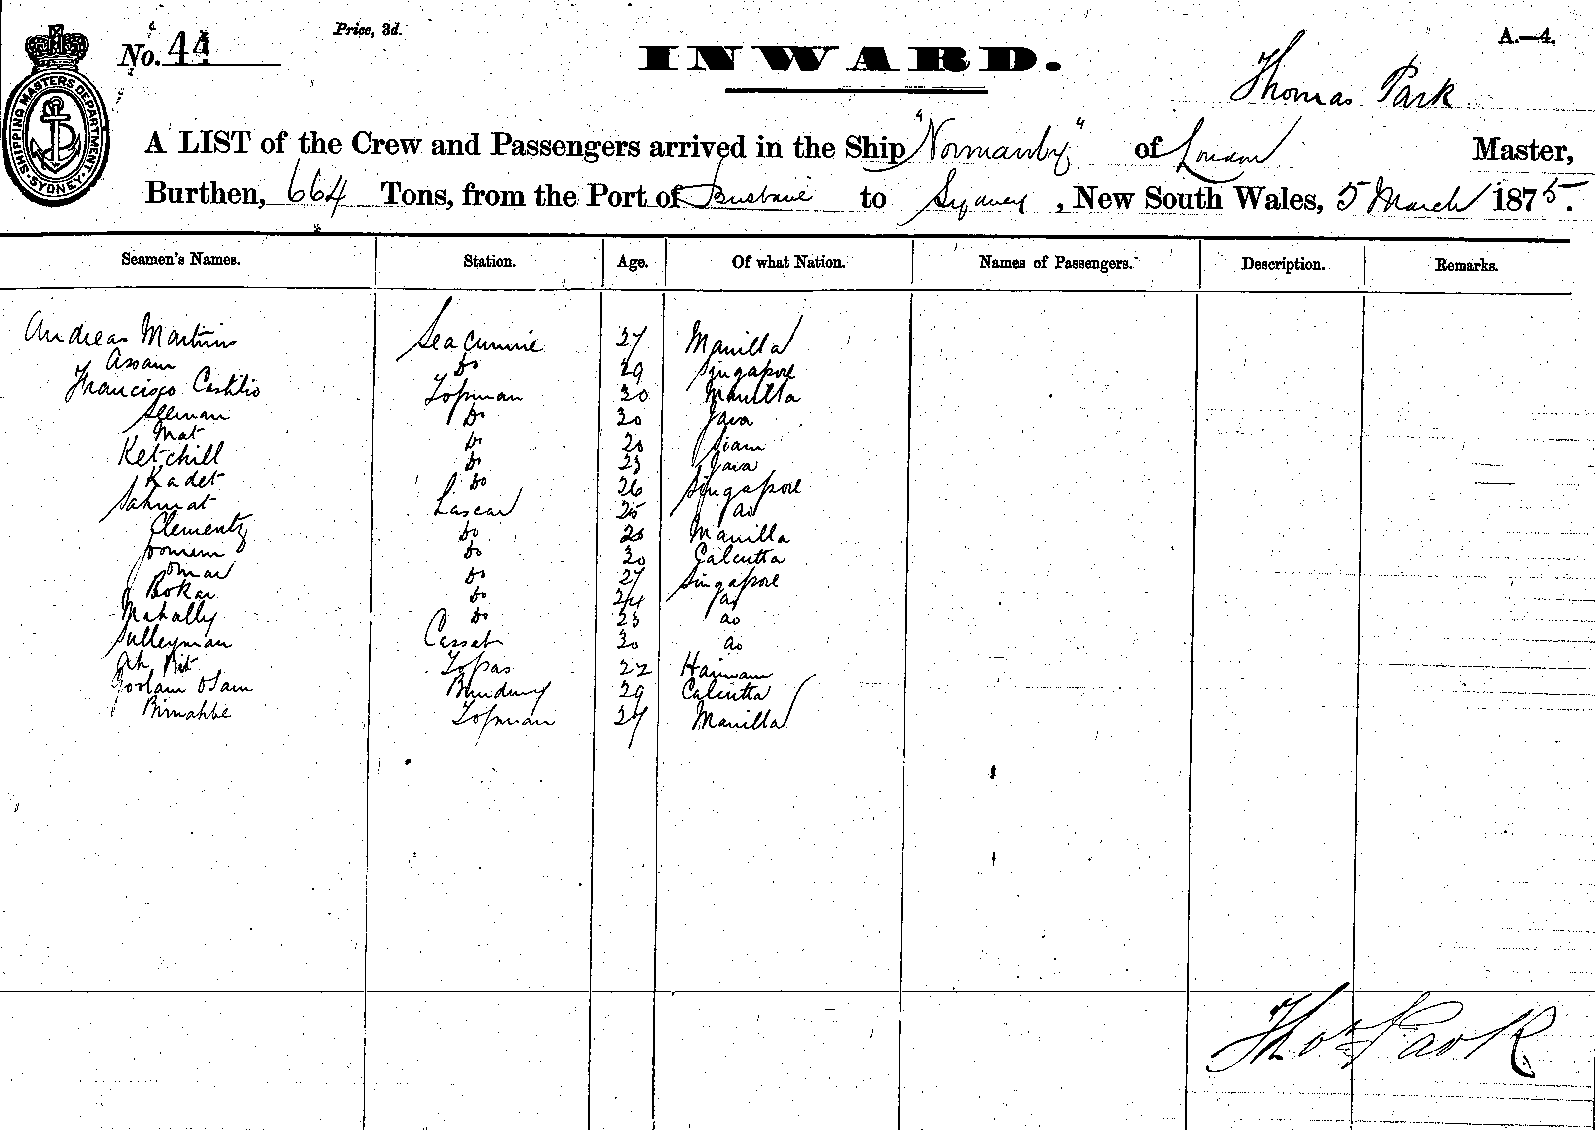 No. 44
Price, 3d.
A.—4.
INWARD.
SHIPPING MASTERS DEPARTMENT SYDNEY
Thomas Park
A LIST of the Crew and Passengers arrived in the Ship "Normanby" of London Master,
Burthen, 664 Tons, from the Port of Brisbane to Sydney, New South Wales, 5 March 1875.
Seamen's Names. Station. Age. Of what Nation. Names of Passengers. Description. Remarks.
Andreas Martins Seacunnie 27 Manilla
Assam Do 29 Singapore
Francisco Castilio Topman 30 Manilla
Selman Do 20 Java
Mat Do 20 Siam
Ketchill Do 23 Java
Kadet Do 26 Singapore
Sahmat Lascar 25 do
Clementz Do 20 Manilla
Do 30 Calcutta
Omar Do 27 Singapore
Bokar Do 24 do
Mahally Do 23 do
Sulleyman Cassab 30 do
Ah Topas 22 Hainam
Goolam Osam 29 Calcutta
Topman 27 Manilla
Thos Park